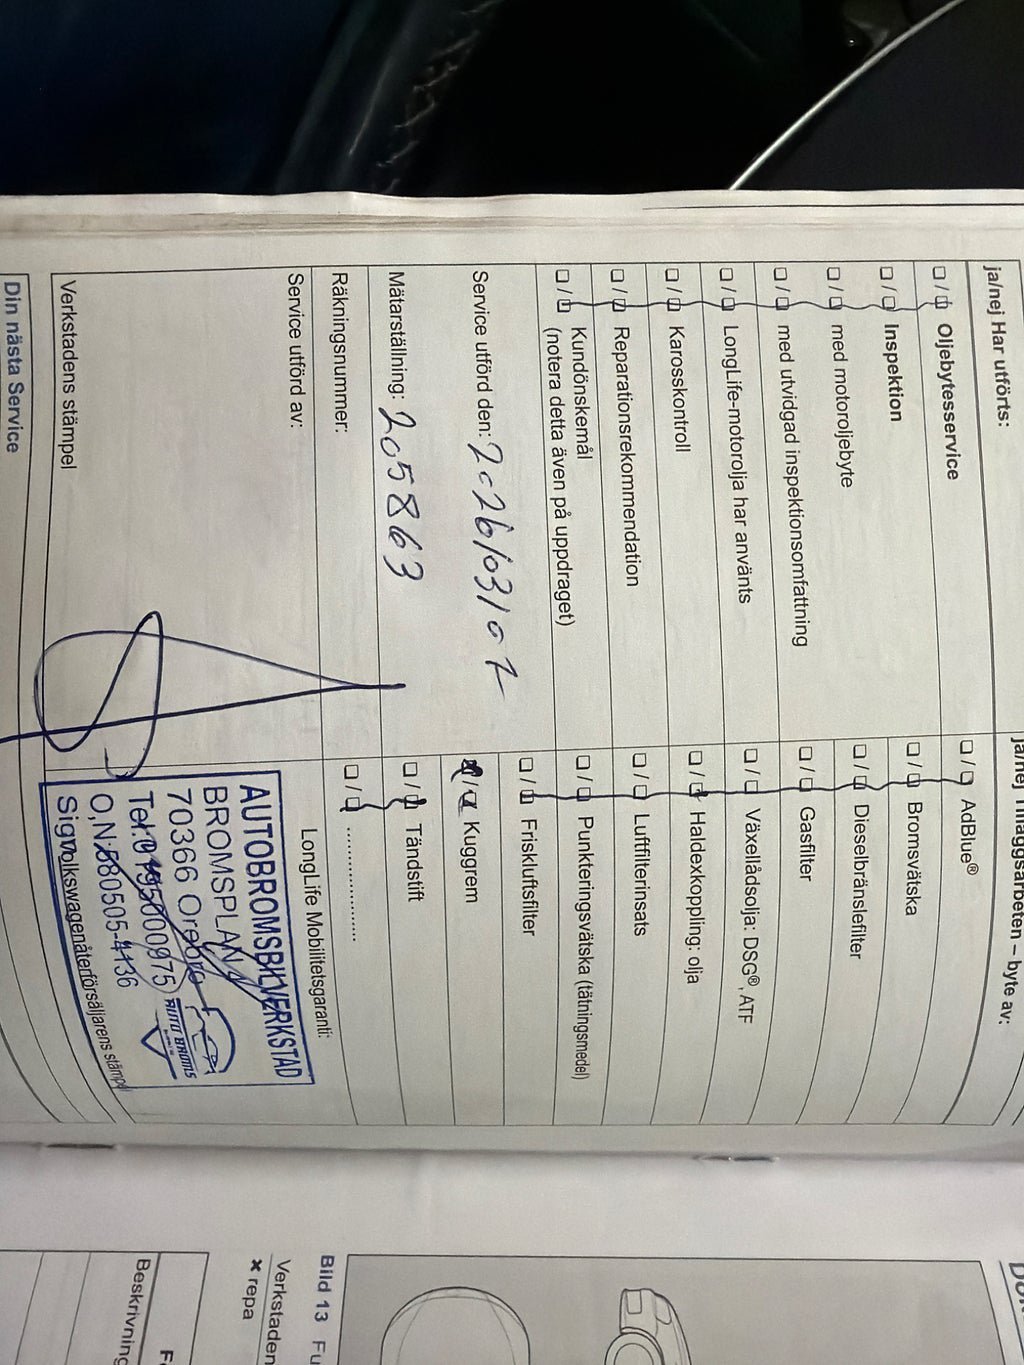 ja/nej Har utförts:
Oljebytesservice
Inspektion
med motoroljebyte
med utvidgad inspektionsomfattning
LongLife-motorolja har använts
Karosskontroll
Reparationsrekommendation
Kundönskemål
(notera detta även på uppdraget)
Service utförd den: 2026/03/02
Mätarställning: 205863
Räkningsnummer:
Service utförd av:
Verkstadens stämpel
ja/nej Tilläggsarbeten – byte av:
AdBlue®
Bromsvätska
Dieselbränslefilter
Gasfilter
Växellådsolja: DSG®, ATF
Haldexkoppling: olja
Luftfilterinsats
Punkteringsvätska (tätningsmedel)
Friskluftsfilter
Kuggrem
Tändstift
....................
LongLife Mobilitetsgaranti:
AUTOBROMSBILVERKSTAD
BROMSPLAN
70366 Orebro
AUTO BROMS
O,N,580505-4136
Sig Volkswagenåterförsäljarens stämpel
Din nästa Service
Bild 13 Fu
Verkstaden
× repa
Beskrivning